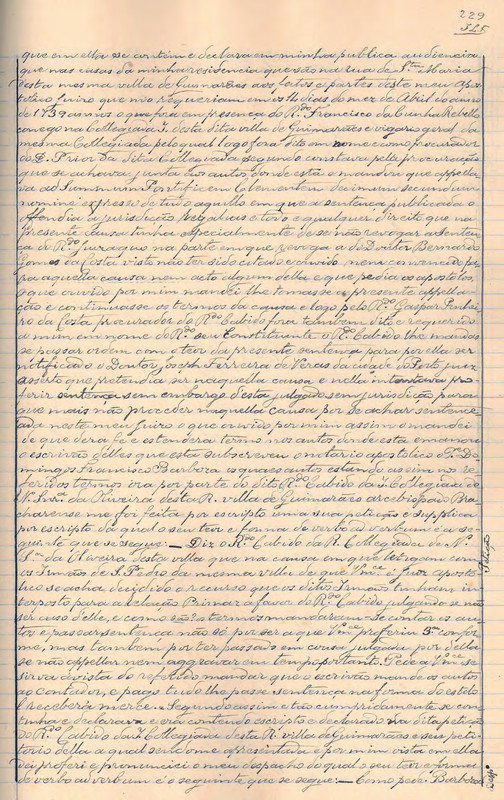 229
F.L.F.
que em ella se contém e declara em minha publica audiencia
que nas casas da minha residencia que são na rua de S.ta Maria
desta mesma villa de Guimarães aos feitos e partes deste meu apos-
tolico juizo que me requeriam em os 11 dias do mez de Abril do anno
de 1739 annos o que fora em presença do R.do Francisco da Cunha Rebello
conego na Collegiada I. desta dita villa de Guimarães e vigario geral da
mesma Collegiada pelo qual logo fora dito em nome e como procurador
do D. Prior da dita Collegiada segundo constava pella procuração
que se achava junta aos autos donde está e mandou que appella-
va ad Summum Pontificem Clementem decimum secundum
nomine expresso de tudo aquillo em que a sentença publicada o
offendia a jurisdicção regalias e todo e qualquer direito que na
presente causa tinha especialmente de se não revogar a senten-
ça do R.do juraquo na parte em que revoga a do Doutor Bernardo
Gomes da Costa visto não ter sido citado e ouvido nem convencido pa-
ra aquella causa nem acto algum della e que pedia os apostolos
o que ouvido por mim mandei lhe tomasse a presente appella-
ção e continuasse os termos da causa e logo pelo R.do Gaspar Pinhei-
ro da Costa procurador do R.do Cabido fora tambem dito e requerido
a mim em nome do R.do seu Constituinte o R.do Cabido lhe mandas-
se passar ordem com o teor da presente sentença para por ella ser
notificado o Doutor Joseph Ferreira de Veras da cidade do Porto juiz
asserto que pretendia ser naquella causa e nella intentava pro-
ferir sentença sem embargo de está julgado sem jurisdição para
que mais não proceder naquella causa por se achar sentence-
ada neste meu juizo o que ouvido por mim assim o mandei
de que dera fé e estendera termo nos autos donde esta emanou
o escrivão delles que esta subscreveu o notario apostolico P.e Do-
mingos Francisco Barboza os quaes autos estando assim nos re-
feridos termos ora por parte do dito R.do Cabido da I. Collegiada de
N. Snr.a da Oliveira desta R. villa de Guimarães arcebispado Bra-
charense me foi feita por escripto uma sua petição e supplica
por escripto da qual o seu teor e forma de verbo ad verbum é o se-
guinte que se segue: — Diz o R.do Cabido da R. Collegiada de N.a
S.ra da Oliveira desta villa que na causa em que letigam com
os Irmãos de S. Pedro da mesma villa de que V.mce é juiz aposto-
lico se acha decidido o recurso que os ditos Irmãos tinham in-
terposto para a Relação Primaz a favor do R.do Cabido julgando se não
ser caso delle, e como os termos mandaram se contar os au-
tos e passar sentença não só por ser a que V.mce proferiu 3.a confor-
me, mas tambem por ter passado em cousa julgada por della
se não appellar nem aggravar em tempo portanto. Pede a V.mce se
sirva á vista do referido mandar que o escrivão mande os autos
ao contador, e pago tudo lhe passe sentença na forma do estilo
e receberá merce. — Segundo assim e tão cumpridamente se con-
tinha e declarava e era contendo escripto e declarado na dita petição
do R.do Cabido da I. Collegiada desta R. villa de Guimarães e seu peti-
torio della a qual sendo me apresentada e por mim vista em ella
dei proferi e pronunciei o meu despacho o qual o seu teor e forma
de verbo ad verbum é o seguinte que se segue: — Como pede. Barboza
Petição
Desp.o